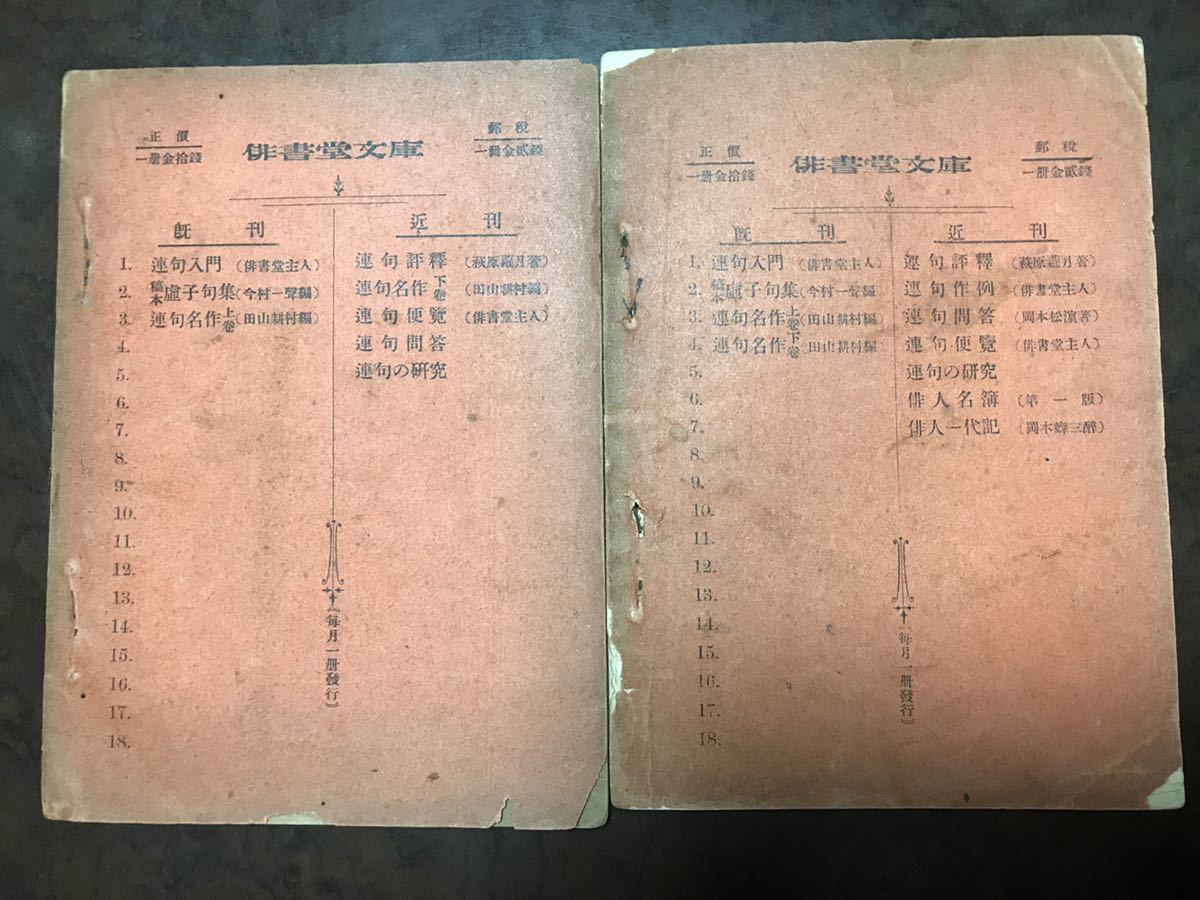 正價
一册金拾錢
俳書堂文庫
郵稅
一册金貳錢
既刊
1. 連句入門 (俳書堂主人)
2. 稿本虛子句集 (今村一聲編)
3. 連句名作上卷 (田山耕村編)
4.
5.
6.
7.
8.
9.
10.
11.
12.
13.
14.
15.
16.
17.
18.
近刊
連句評釋 (萩原蘿月著)
連句名作下卷 (田山耕村編)
連句便覽 (俳書堂主人)
連句問答
連句の硏究
(每月一册發行)
正價
一册金拾錢
俳書堂文庫
郵稅
一册金貳錢
既刊
1. 連句入門 (俳書堂主人)
2. 稿本虛子句集 (今村一聲編)
3. 連句名作上卷 (田山耕村編)
4. 連句名作下卷 (田山耕村編)
5.
6.
7.
8.
9.
10.
11.
12.
13.
14.
15.
16.
17.
18.
近刊
連句評釋 (萩原蘿月著)
連句作例 (俳書堂主人)
連句問答 (岡本松濱著)
連句便覽 (俳書堂主人)
連句の硏究
俳人名簿 (第一版)
俳人一代記 (岡本癖三醉)
(每月一册發行)